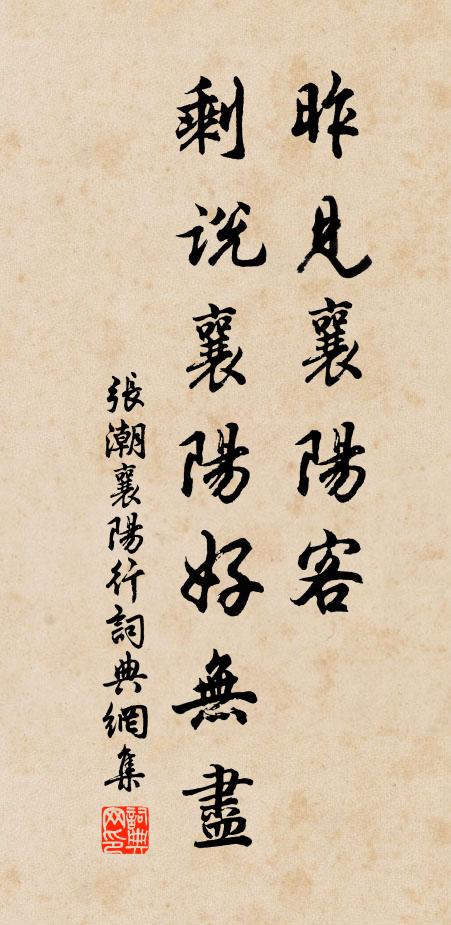 昨見襄陽客
剩説襄陽好無盡
張潮襄陽行詞典網集
詞典網印